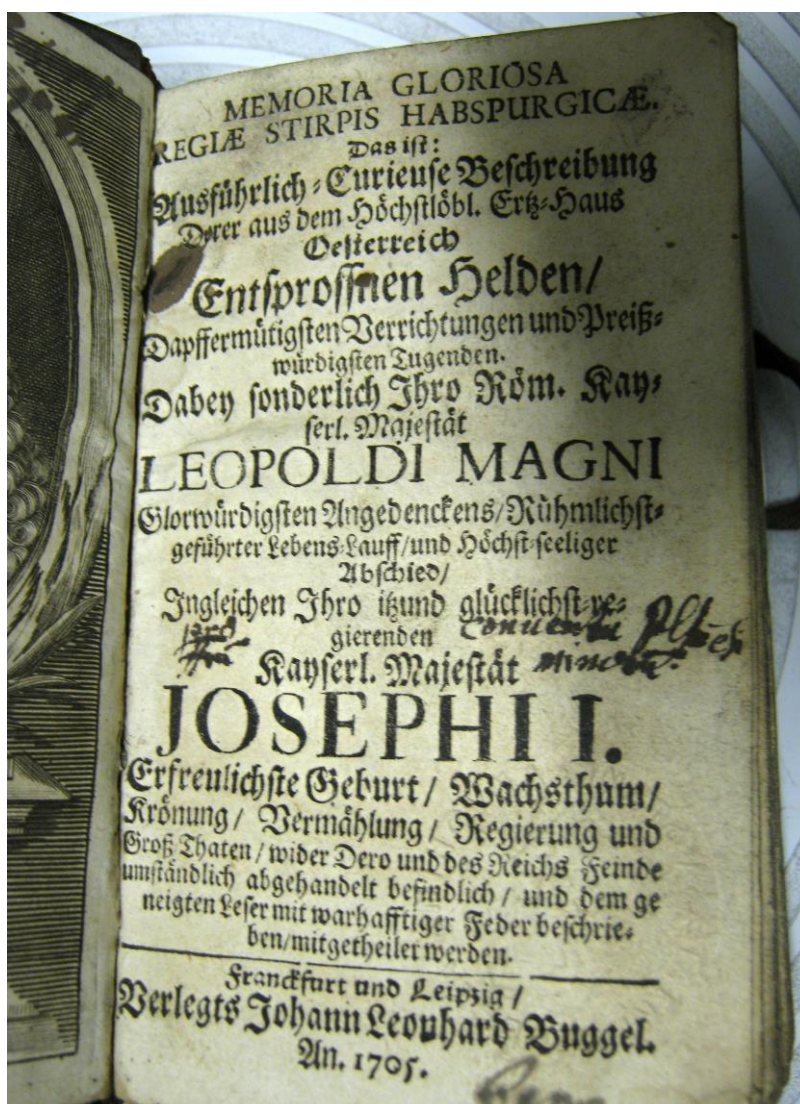 MEMORIA GLORIOSA
REGIÆ STIRPIS HABSPURGICÆ.
Das ist:
Ausführlich-Curieuse Beschreibung
Derer aus dem Höchstlöbl. Ertz-Haus
Oesterreich
Entsprossnen Helden/
Dapffermütigsten Verrichtungen und Preiß-
würdigsten Tugenden.
Dabey sonderlich Ihro Röm. Kay-
serl. Majestät
LEOPOLDI MAGNI
Glorwürdigsten Angedenckens/Rühmlichst-
geführter Lebens-Lauff/und Höchst-seeliger
Abschied/
Ingleichen Ihro itzund glücklichst-re-
gierenden
Kayserl. Majestät
JOSEPHI I.
Erfreulichste Geburt/ Wachsthum/
Krönung/ Vermählung/ Regierung und
Groß Thaten/wider Dero und des Reichs Feinde
umständlich abgehandelt befindlich/ und dem ge
neigten Leser mit warhafftiger Feder beschrie-
ben/mitgetheilet werden.
Franckfurt und Leipzig/
Verlegts Johann Leonhard Buggel.
An. 1705.